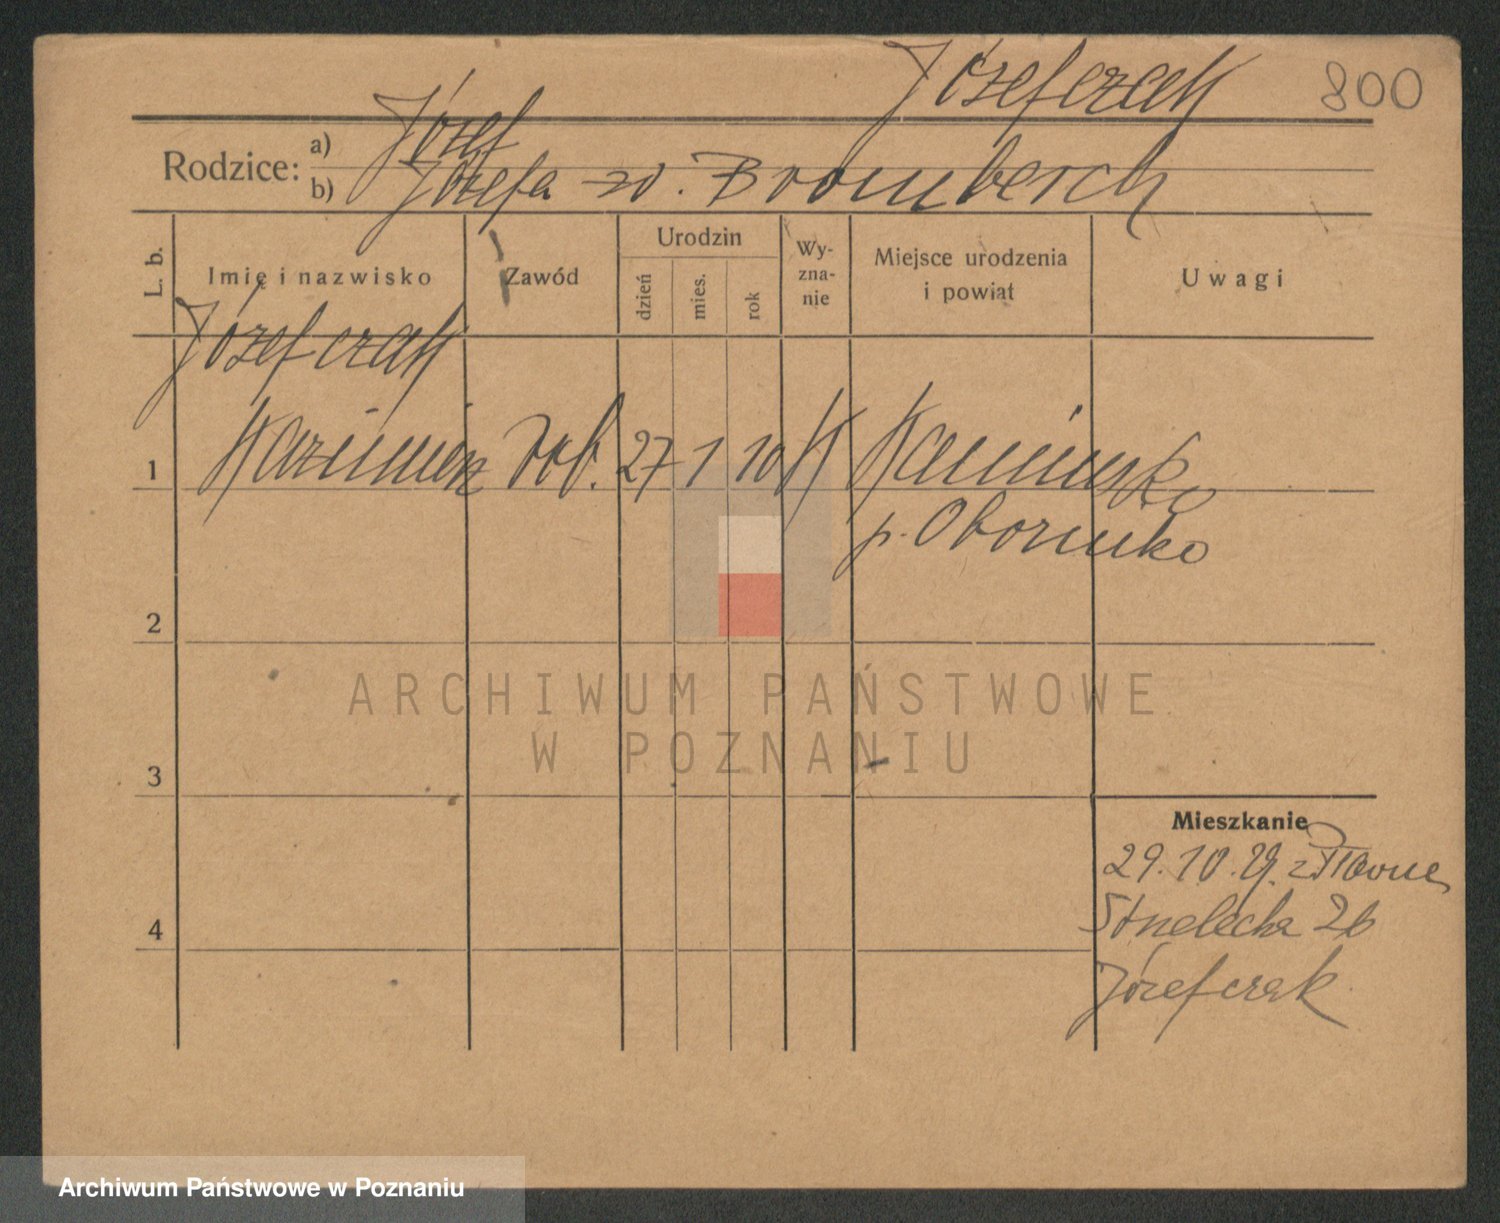 Józefczak 800
Rodzice: a) Józef
b) Józefa zd. Bromberch
L. b. Imię i nazwisko Zawód Urodzin dzień mies. rok Wyznanie Miejsce urodzenia i powiat Uwagi
Józefczak
1 Kazimierz rob. 27 1 10 K Kaminsko
p. Obornicko
2
ARCHIWUM PAŃSTWOWE
W POZNANIU
3
Mieszkanie
29.10.29. z
4 Strzelecka 26
Józefczak
Archiwum Państwowe w Poznaniu